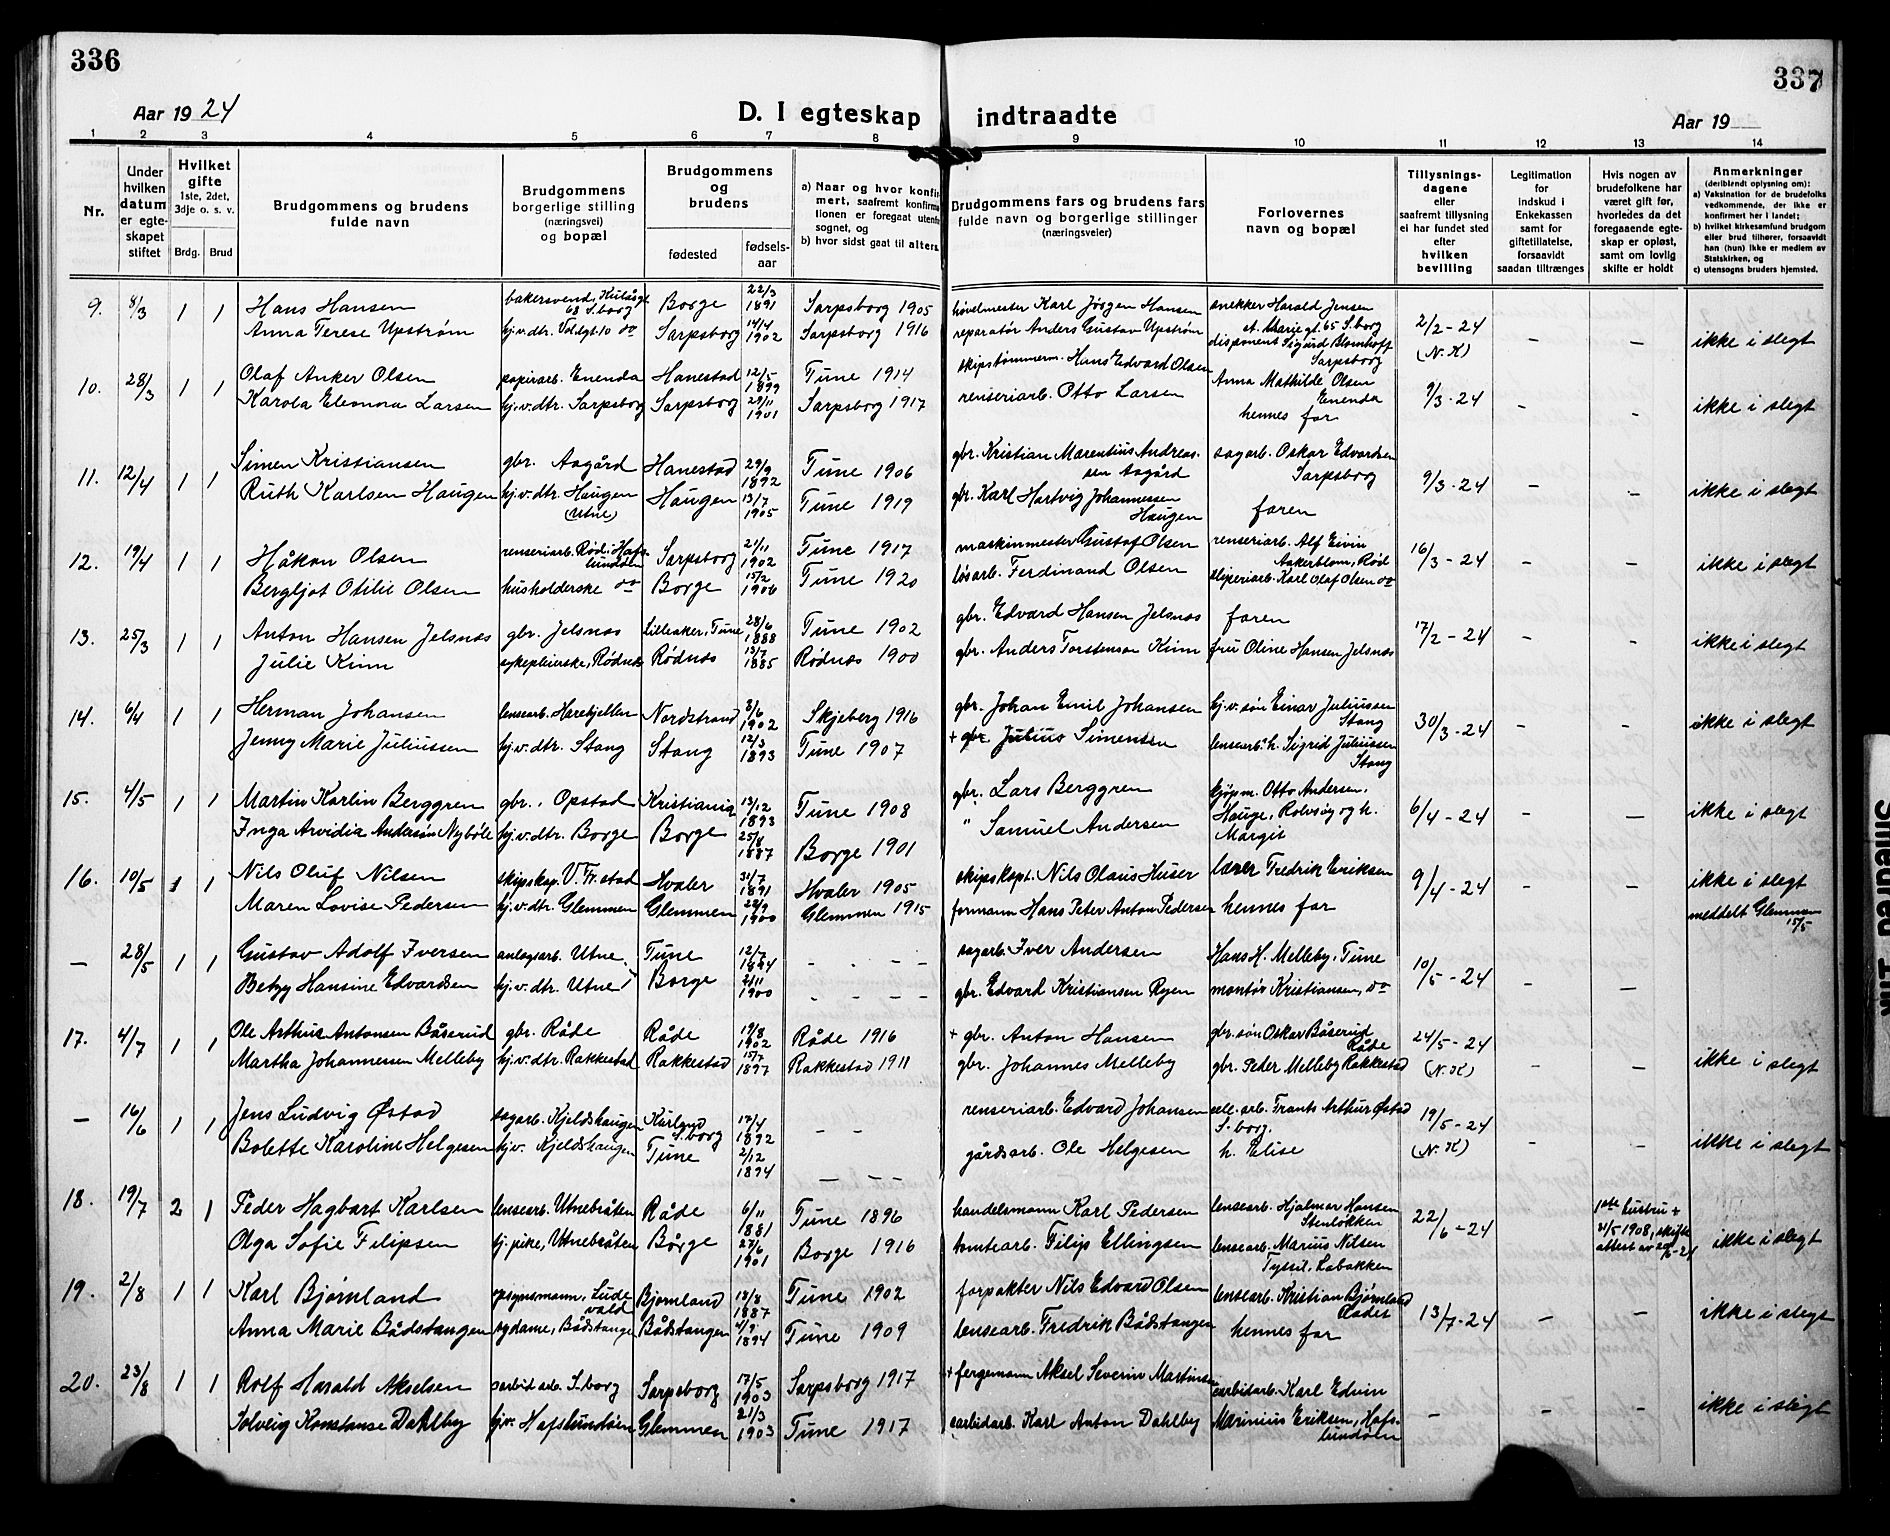 336
337
Aar 1924
D. I egteskap indtraadte
Aar 19
1 2 3 4 5 6 7 8 9 10 11 12 13 14
Nr.
Under hvilken datum er egteskapet stiftet
Hvilket gifte 1ste, 2det, 3dje o. s. v.
Brdg. Brud
Brudgommens og brudens fulde navn
Brudgommens borgerlige stilling (næringsvei) og bopæl
Brudgommens og brudens
fødested
fødselsaar
a) Naar og hvor konfirmert, saafremt konfirmationen er foregaat utenfor sognet, og
b) hvor sidst gaat til alters.
Brudgommens fars og brudens fars fulde navn og borgerlige stillinger (næringsveier)
Forlovernes navn og bopæl
Tillysningsdagene eller saafremt tillysning ei har fundet sted efter hvilken bevilling
Legitimation for indskud i Enkekassen samt for giftetillatelse, forsaavidt saadan tiltrænges
Hvis nogen av brudefolkene har været gift før, hvorledes da det foregaaende egteskap er opløst, samt om lovlig skifte er holdt
Anmerkninger (deriblandt oplysning om):
a) Vaksination for de brudefolks vedkommende, der ikke er konfirmert her i landet;
b) hvilket kirkesamfund brudgom eller brud tilhører, forsaavidt han (hun) ikke er medlem av Statskirken, og
c) utensogns bruders hjemsted.
9. 8/3 1 1 Hans Hansen bakersvend, Kulåsgt. 68 S.borg Borge 22/3 1891 Sarpsborg 1905 høvelmester Karl Jørgen Hansen snekker Harald Jensen St. Marie gt. 65 S.borg 2/2-24 (N.K) - - ikke i slegt
Anna Terese Upstrøm hj.v.dtr. Voldgt. 10 do Sarpsborg 14/4 1902 Sarpsborg 1916 reparatør Anders Gustav Upstrøm disponent Sigurd Blomhoff Sarpsborg
10. 28/3 1 1 Olaf Anker Olsen papirarb. Enenda Hanestad 12/5 1899 Tune 1914 skipstømmerm. Hans Edvard Olsen Anna Mathilde Olsen Enenda 9/3-24 - - ikke i slegt
Karola Eleonora Larsen hj.v.dtr. Sarpsborg Sarpsborg 29/11 1901 Sarpsborg 1917 renseriarb. Otto Larsen hennes far
11. 12/4 1 1 Simen Kristiansen gbr. Aagård Hanestad 29/9 1892 Tune 1906 gbr. Kristian Marentius Andreassen Aagård sagarb. Oskar Edvardsen Sarpsborg 9/3-24 - - ikke i slegt
Ruth Karlsen Haugen hj.v.dtr. Haugen (Utne) Haugen 13/7 1905 Tune 1919 gbr. Karl Hartvig Johannessen Haugen faren
12. 19/4 1 1 Håkon Olsen renseriarb. Rød i Hafslundsøen Sarpsborg 21/11 1902 Tune 1917 maskinmester Gustaf Olsen renseriarb. Alf Eivin Aakerblom, Rød 16/3-24 - - ikke i slegt
Bergljot Otilie Olsen husholderske do Borge 15/2 1906 Tune 1920 løsarb. Ferdinand Olsen sliperiarb. Karl Olaf Olsen do
13. 25/3 1 1 Anton Hansen Jelsnæs gbr. Jelsnæs Lilleaker, Tune 28/6 1888 Tune 1902 gbr. Edvard Hansen Jelsnæs faren 17/2-24 - - ikke i slegt
Julie Kinn sykepleierske, Rødnæs Rødnæs 13/7 1885 Rødnæs 1900 gbr. Anders Torstensen Kinn fru Oline Hansen Jelsnæs
14. 6/4 1 1 Herman Johansen lensearb. Harekjellen Nordstrand 3/6 1902 Skjeberg 1916 gbr. Johan Emil Johansen hj.v. søn Einar Juliussen Stang 30/3-24 - - ikke i slegt
Jenny Marie Juliussen hj.v.dtr. Stang Stang 12/3 1893 Tune 1907 + gbr Julius Simensen lensearb. h. Sigrid Juliussen Stang
15. 4/5 1 1 Martin Karlin Berggren gbr. Opstad Kristiania 13/12 1893 Tune 1908 gbr. Lars Berggren kjøpm. Otto Andersen, Hauge, Rolvsøy og h. Margit 6/4-24 - - ikke i slegt
Inga Arvidia Andersen Nybøle hj.v.dtr. Borge Borge 25/8 1887 Borge 1901 " Samuel Andersen
16. 10/5 1 1 Nils Oluf Nilsen skipskap. V. Fr.stad Hvaler 31/7 1891 Hvaler 1905 skipskapt. Nils Olaus Huser lærer Fredrik Eriksen 9/4-24 - - ikke i slegt
Maren Lovise Pedersen hj.v.dtr. Glemmen Glemmen 28/9 1900 Glemmen 1915 formann Hans Peter Anton Pedersen hennes far meddelt Glemmen 15/5
— 28/5 1 1 Gustav Adolf Iversen anlegsarb. Utne Tune 12/7 1894 - - - - sagarb. Iver Andersen Hans H. Melleby, Tune 10/5-24 - -
Betzy Hansine Edvardsen hj.v.dtr. Utne Borge 2/11 1900 - - - - gbr. Edvard Kristiansen Ryen montør Kristiansen, do
17. 4/7 1 1 Ole Arthur Antonsen Båserud gbr. Råde Råde 19/8 1902 Råde 1916 + gbr. Anton Hansen gbr. søn Oskar Båserud Råde 24/5-24 (N.K) - - ikke i slegt
Martha Johannessen Melleby hj.v.dtr. Rakkestad Rakkestad 15/7 1897 Rakkestad 1911 gbr. Johannes Melleby gbr. Peder Melleby Rakkestad
— 16/6 1 1 Jens Ludvig Østad sagarb. Kjeldshaugen S.borg 17/4 1892 - - renseriarb. Edvard Johansen cell.arb. Frants Arthur Østad S.borg. 19/5-24 (N.K) - - ikke i slegt
Bolette Karoline Helgesen hj.v. Kjeldshaugen Tune 2/12 1894 - - - gårdsarb. Ole Helgesen h. Elise
18. 19/7 2 1 Peder Hagbart Karlsen lensearb. Utnebråten Råde 6/11 1881 Tune 1896 handelsmann Karl Pedersen lensearb. Hjalmar Hansen Stenløkken 22/6-24 1ste hustru + 31/5 1908, skifteattest av ikke i slegt
Olga Sofie Filipsen tj. pike, Utnebråten Borge 27/6 1901 Borge 1916 tomtearb. Filip Ellingsen lensearb. Marius Nilsen Tyssil, Labakken
19. 2/8 1 1 Karl Bjørnland opsynsmann, Ludevald Bjørnland 13/8 1887 Tune 1902 forpakter Nils Edvard Olsen lensearb. Kristian Bjørnland 13/7-24 - - ikke i slegt
Anna Marie Bådstangen sydame, Bådstangen Bådstangen 4/9 1894 Tune 1909 lensearb. Fredrik Bådstangen hennes far
20. 23/8 1 1 Rolf Harald Akselsen carbid arb. S.borg Sarpsborg 17/5 1903 Sarpsborg 1917 + fergemann Aksel Severin Martinsen carbidarb. Karl Edvin - - - ikke i slegt
Solveig Konstanse Dahlby hj.v. Hafslundsøen Glemmen 21/3 1903 Tune 1917 carbidarb. Karl Anton Dahlby Marinius Eriksen, Hafslundsøen